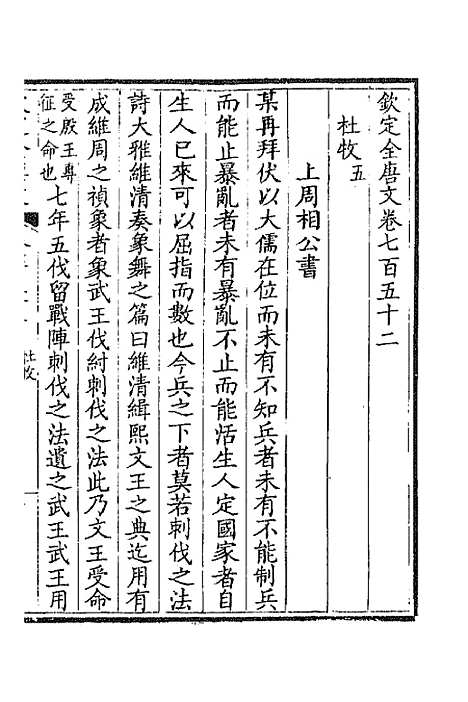 欽定全唐文卷七百五十二
杜牧五
上周相公書
某再拜伏以大儒在位而未有不知兵者未有不能制兵
而能止暴亂者未有暴亂不止而能恬生人定國家者自
生人已來可以屈指而數也今兵之下者莫若刺伐之法
詩大雅維清奏象舞之篇曰維清緝熙文王之典迄用有
成維周之禎象者象武王伐紂刺伐之法此乃文王受命
受殷王專
征之命也
七年五伐留戰陣刺伐之法遺之武王武王用
杜牧